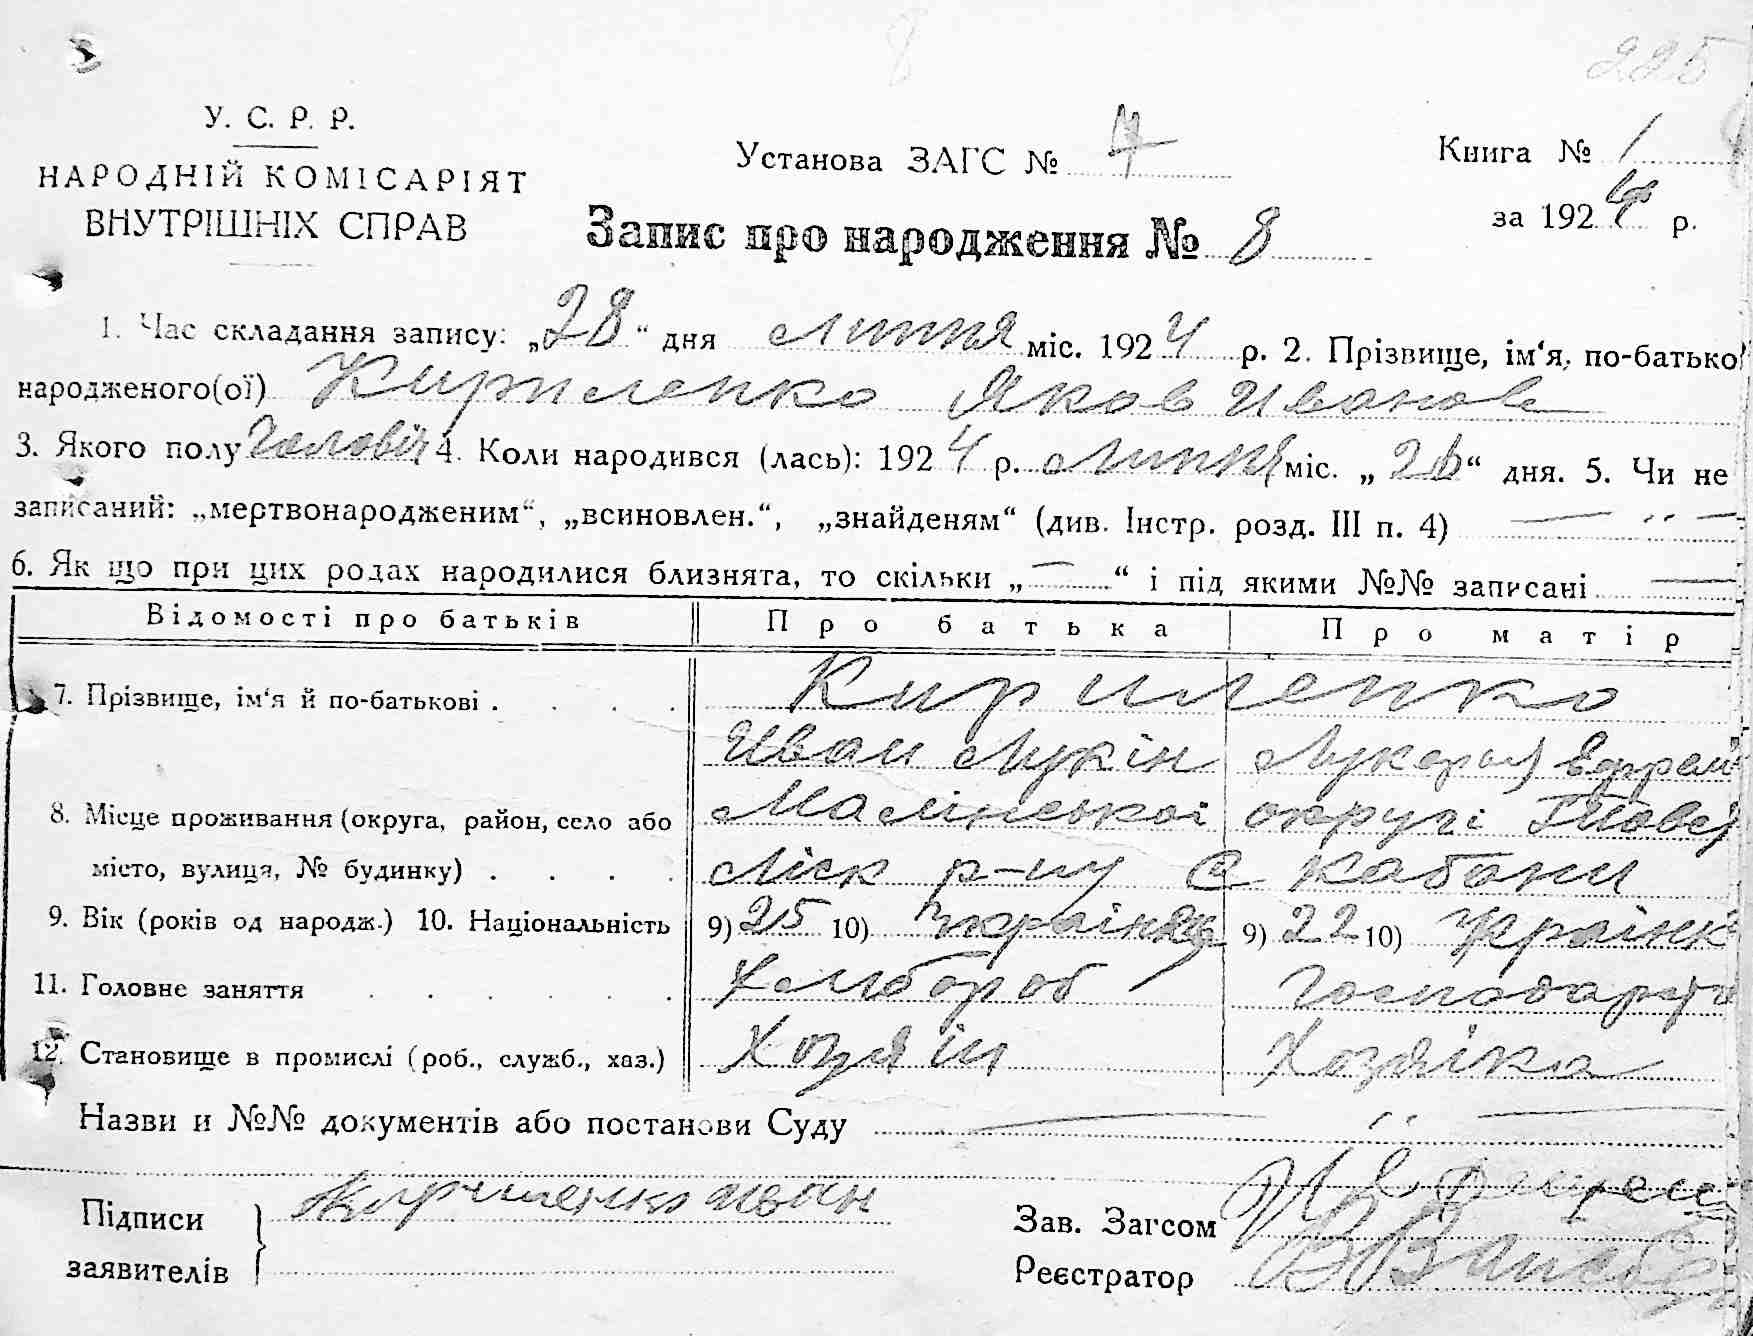 225
У. С. Р. Р.
НАРОДНІЙ КОМІСАРІЯТ
ВНУТРІШНІХ СПРАВ
Установа ЗАГС №
Книга № 1
за 1924 р.
Запис про народження № 8
1. Час складання запису: „28“ дня Липня міс. 1924 р. 2. Прізвище, ім‘я, по-батькові
народженого(ої) Кириленко Яков Иванов
3. Якого полу Чоловіч 4. Коли народився (лась): 1924 р. Липня міс. „26“ дня. 5. Чи не
записаний: „мертвонародженим“, „всиновлен.“, „знайденям“ (див. Інстр. розд. III п. 4) — „ —
6. Як що при цих родах народилися близнята, то скільки „—“ і під якими №№ записані —
Відомості про батьків Про батька Про матір
7. Прізвище, ім‘я й по-батькові . . . . Кириленко
Иван Лукін Лукерья Ефрем
8. Місце проживання (округа, район, село або Малінської округі
місто, вулиця, № будинку) . . . . р-ну С Кабани
9. Вік (років од народж.) 10. Національність 9) 25 10) Українець 9) 22 10) Українк
11. Головне заняття . . . . . Хлібороб Господарств
12. Становище в промислі (роб., служб., хаз.) Хозяїн Хозяйка
Назви и №№ документів або постанови Суду — „ —
Підписи Кириленко Иван
заявителів
Зав. Загсом
Реєстратор